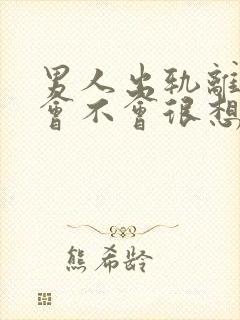 男人出轨離
會不會很想
熊希龄